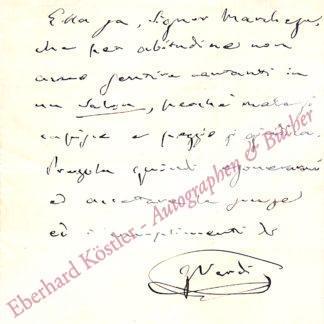 Ella sa, Signor Marchese,
che per abitudine non
amo sentire cantanti in
un Salon, perchè male si
capisce e peggio si giudica.
Pregola quindi
ed accettare
ed i complimenti di
GVerdi
Eberhard Köstler - Autographen & Bücher